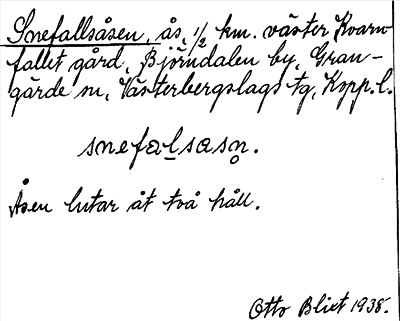 Snefallsåsen, ås, 1/2 km. väster Kvarn
fallet gård, Björndalen by, Gran-
gärde sn, Västerbergslags tg, Kopp. l.
snefa̲lsaso̥n.
Åsen lutar åt två håll.
Otto Blixt 1938.